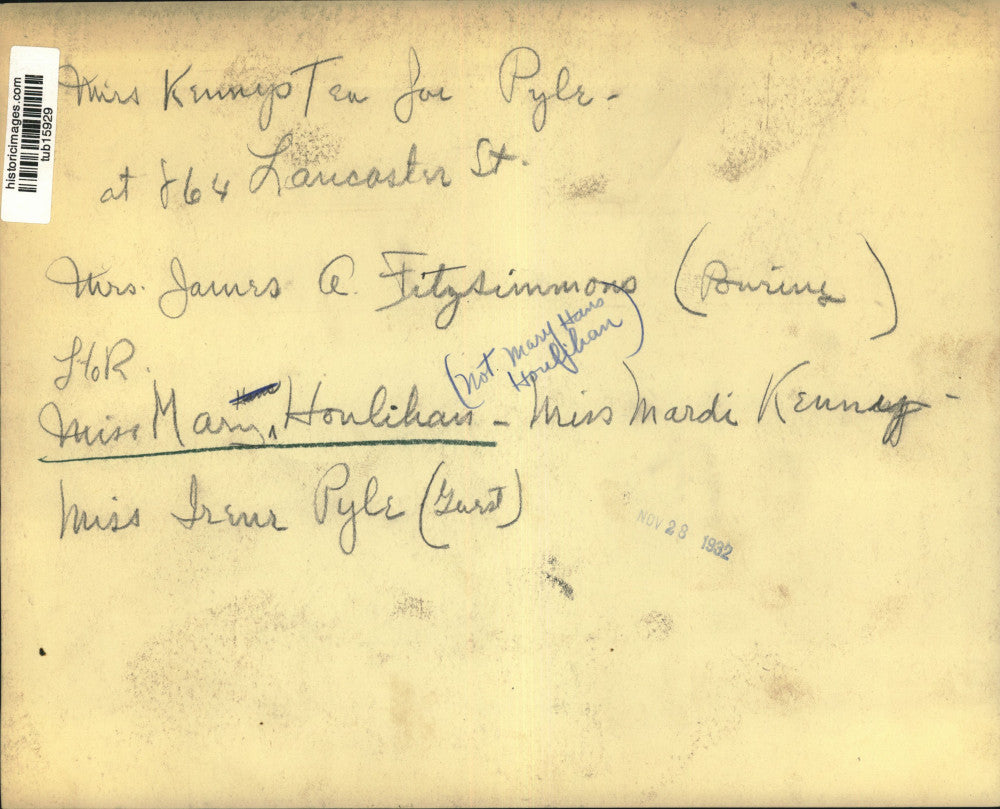 historicimages.com
tub15929
Miss Kennys Tea for Pyle -
at 864 Lancaster St.
Mrs. James A. Fitzsimmons (Pouring)
L to R.
(not Mary Hans
Houlihan)
Miss Mary Houlihan - Miss Mardi Kenney -
Miss Irene Pyle (Guest)
NOV 28 1932